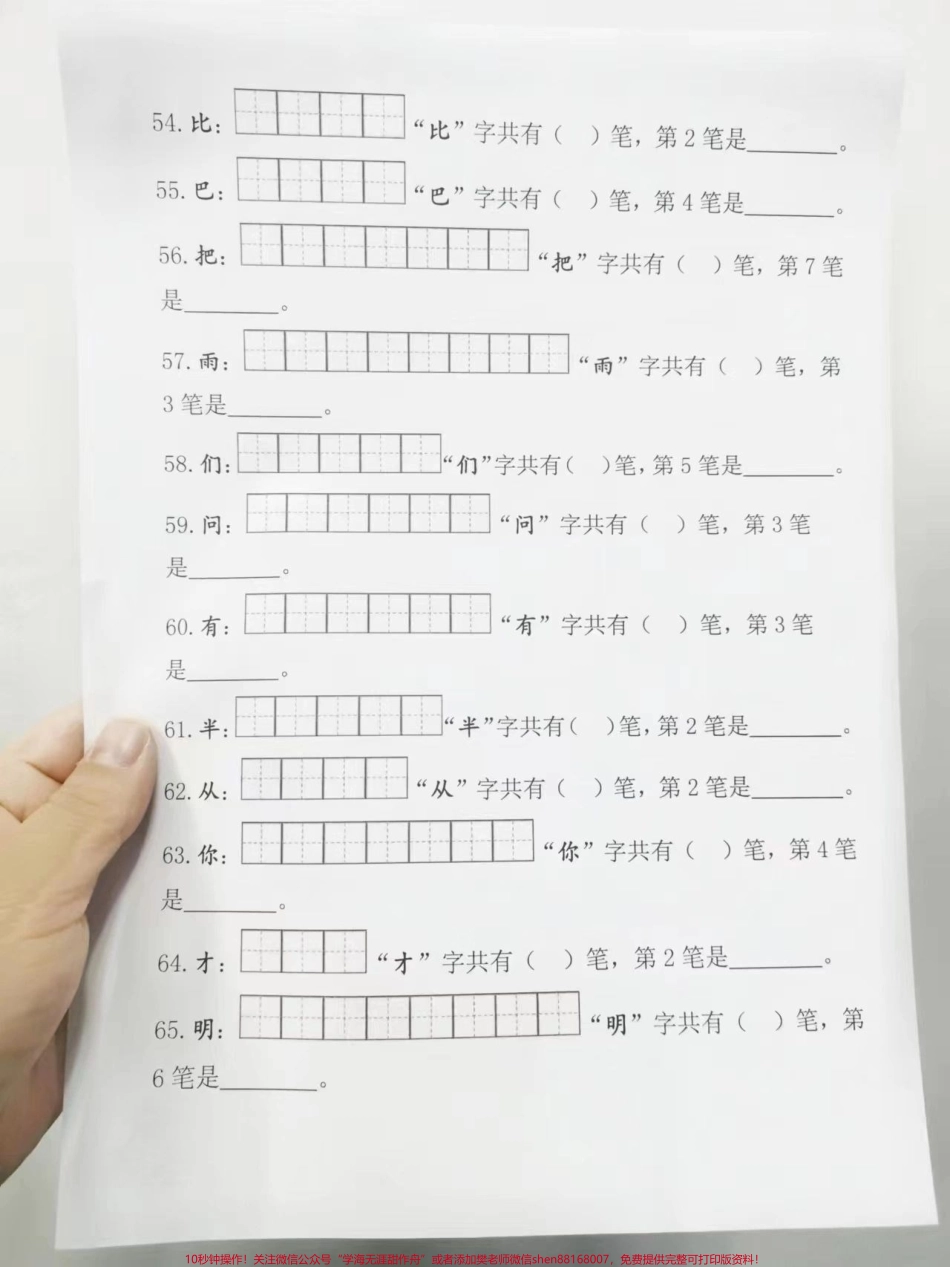 54.比： “比”字共有（ ）笔，第2笔是________。
55.巴： “巴”字共有（ ）笔，第4笔是________。
56.把： “把”字共有（ ）笔，第7笔
是________。
57.雨： “雨”字共有（ ）笔，第
3笔是________。
58.们： “们”字共有（ ）笔，第5笔是________。
59.问： “问”字共有（ ）笔，第3笔
是________。
60.有： “有”字共有（ ）笔，第3笔
是________。
61.半： “半”字共有（ ）笔，第2笔是________。
62.从： “从”字共有（ ）笔，第2笔是________。
63.你： “你”字共有（ ）笔，第4笔
是________。
64.才： “才”字共有（ ）笔，第2笔是________。
65.明： “明”字共有（ ）笔，第
6笔是________。
10秒钟操作！关注微信公众号“学海无涯甜作舟”或者添加樊老师微信shen88168007，免费提供完整可打印版资料！